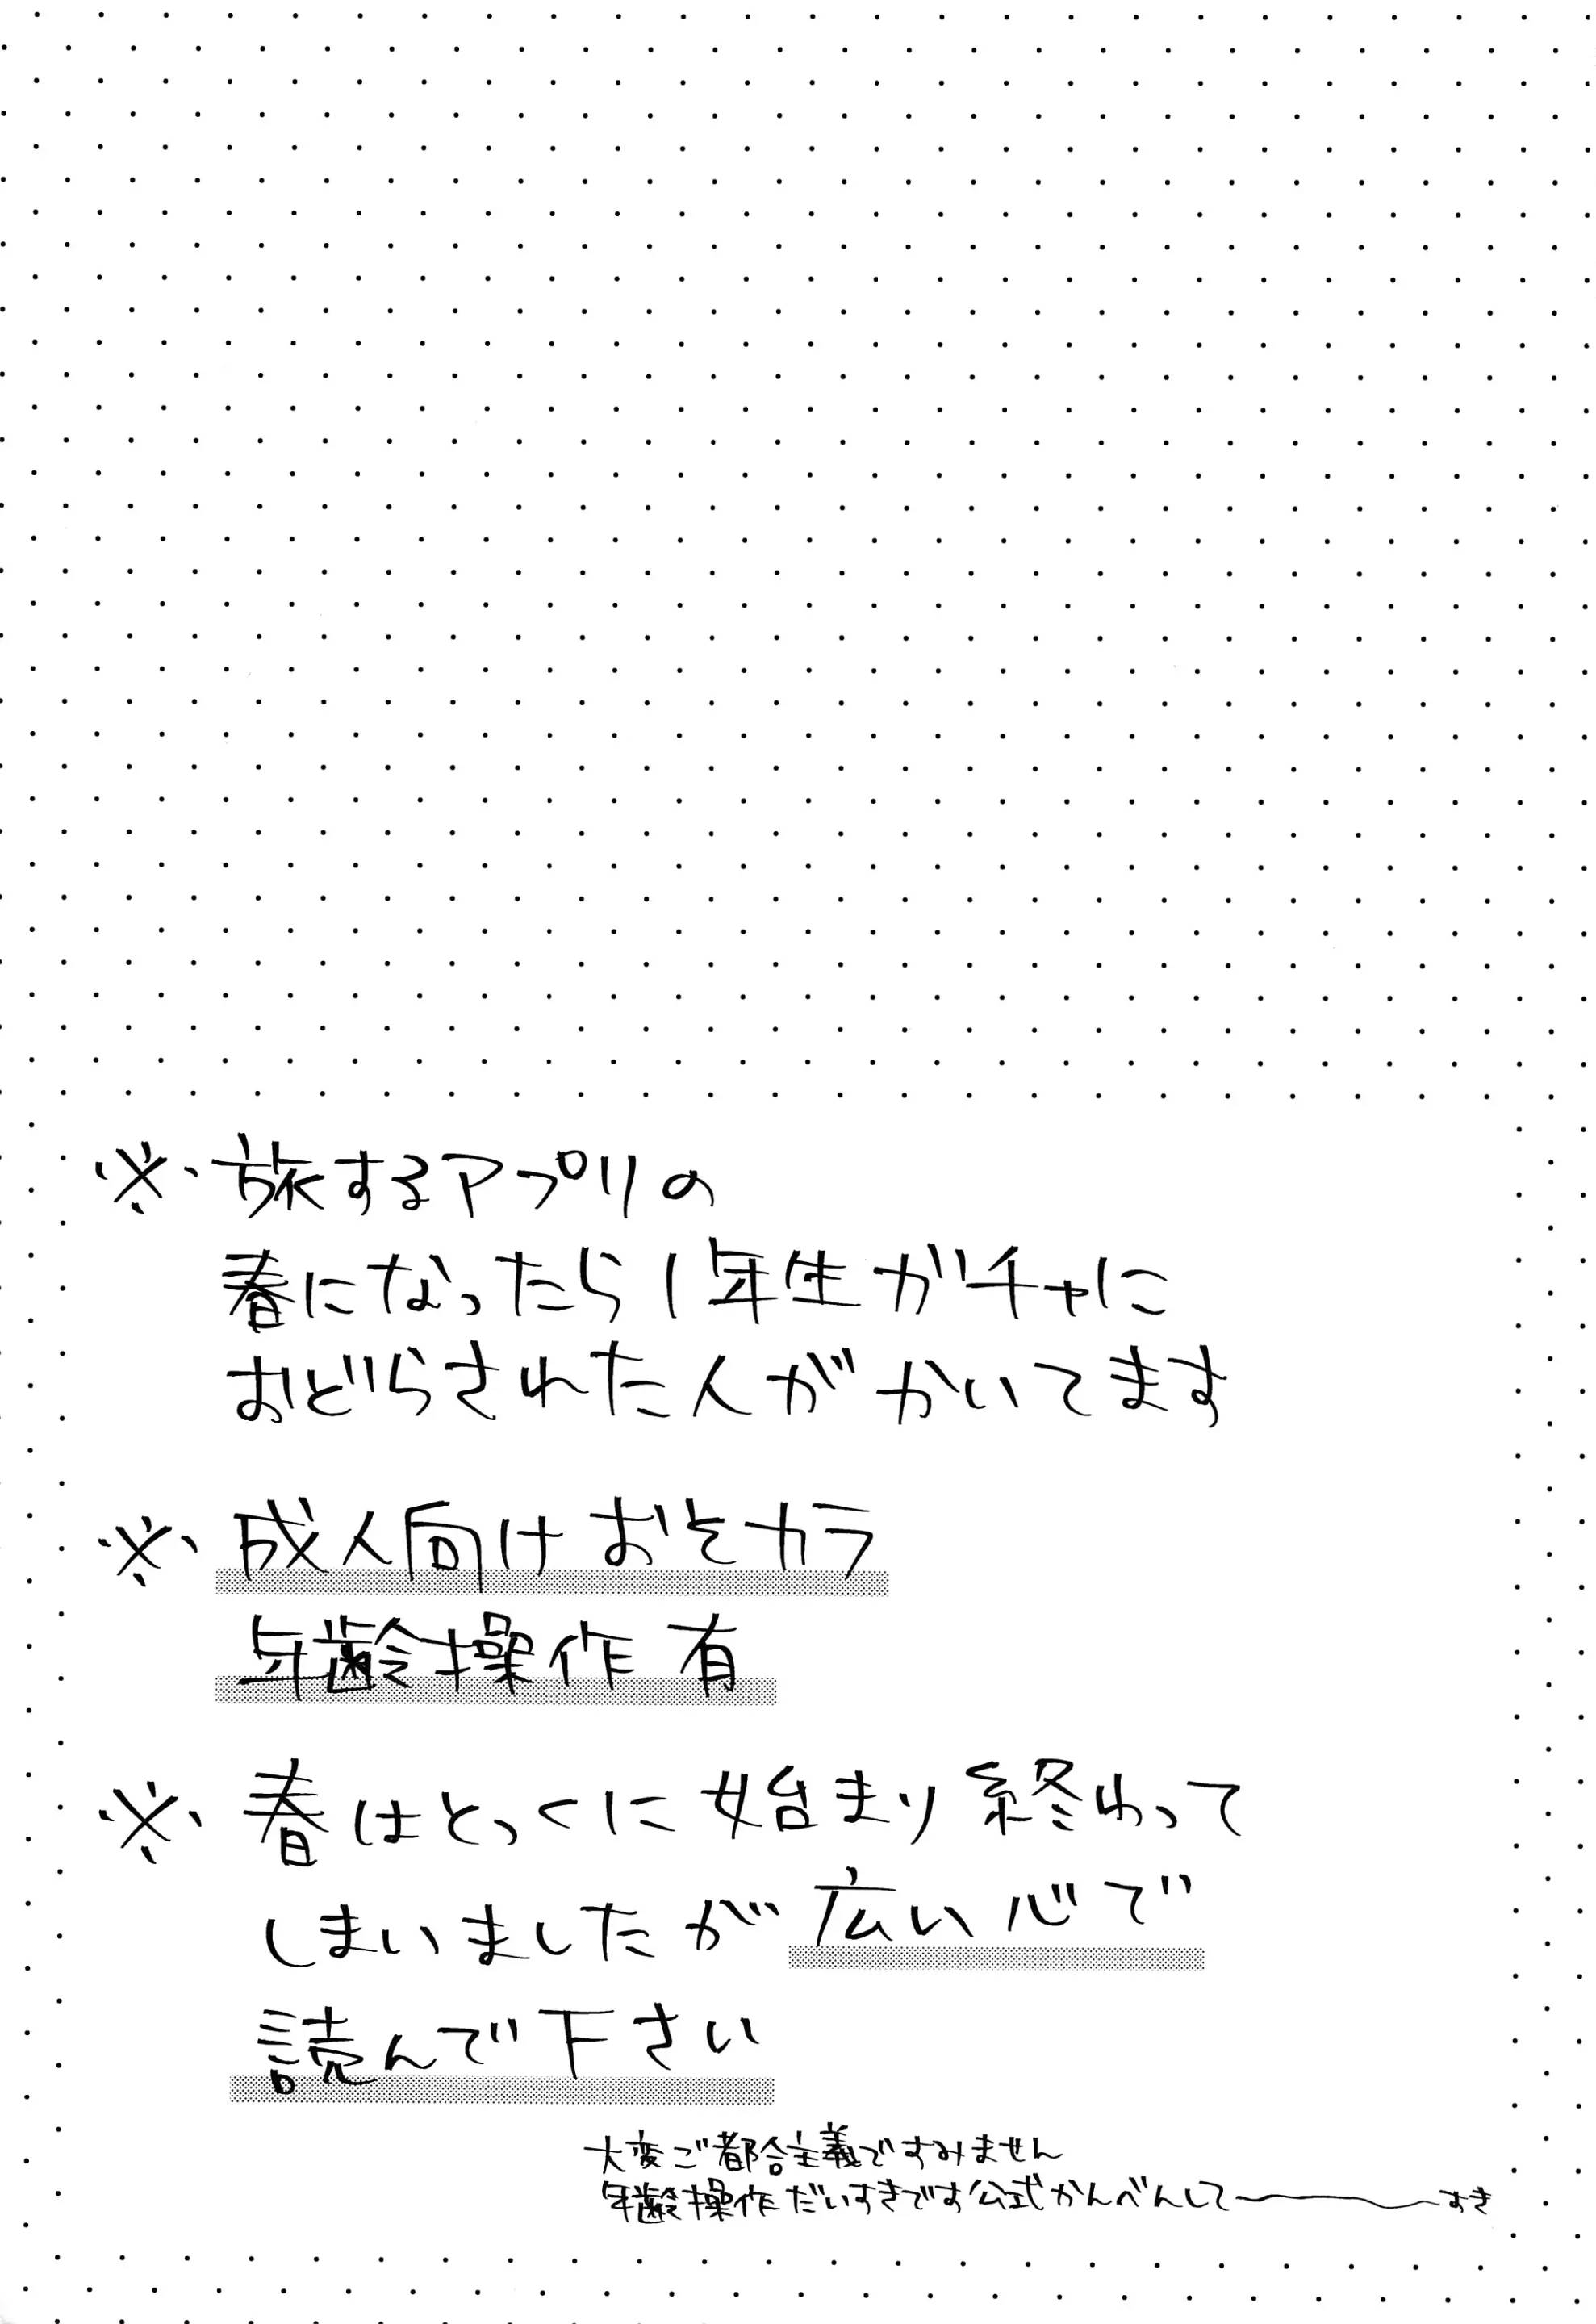 ※旅するアプリの
春になったら1年生ガチャに
おどらされた人がかいてます
※成人向けおそカラ
年齢操作有
※春はとっくに始まり終わって
しまいましたが広い心で
読んで下さい
大変ご都合主義ですみません
年齢操作だいすきです公式かんべんして―――すき